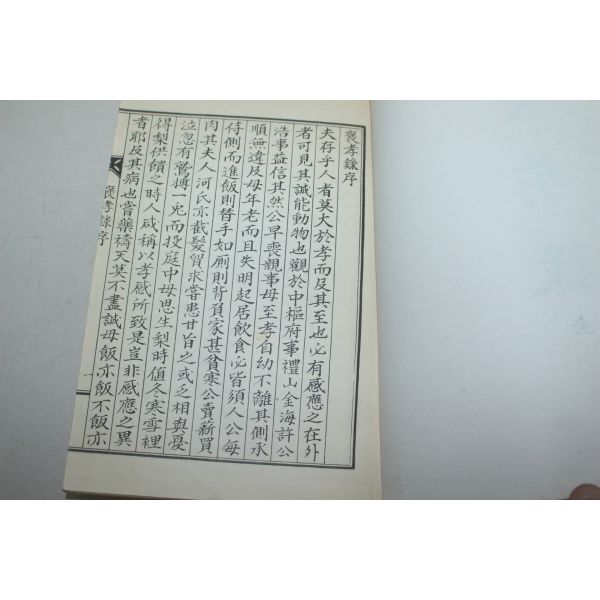 褒孝錄序
夫存乎人者莫大於孝而及其至也必有感應之在外
者可見其誠能動物也觀於中樞府事禮山金海許公
浩事益信其然公早喪親事母至孝自幼不離其側承
順無違及母年老而且失明起居飮食必皆須人公每
侍側而進飯則替手如厠則背負家甚貧寒公賣薪買
肉其夫人河氏亦截髮貿米嘗患甘旨之或乏相與憂
泣忽有鷲搏兎而投庭中母思生梨時値冬寒雪裡
得梨供饋之時人咸稱以孝感所致是豈非感應之異
者耶及其病也嘗藥禱天莫不盡誠母飯亦飯不飯亦
褒孝錄序
一